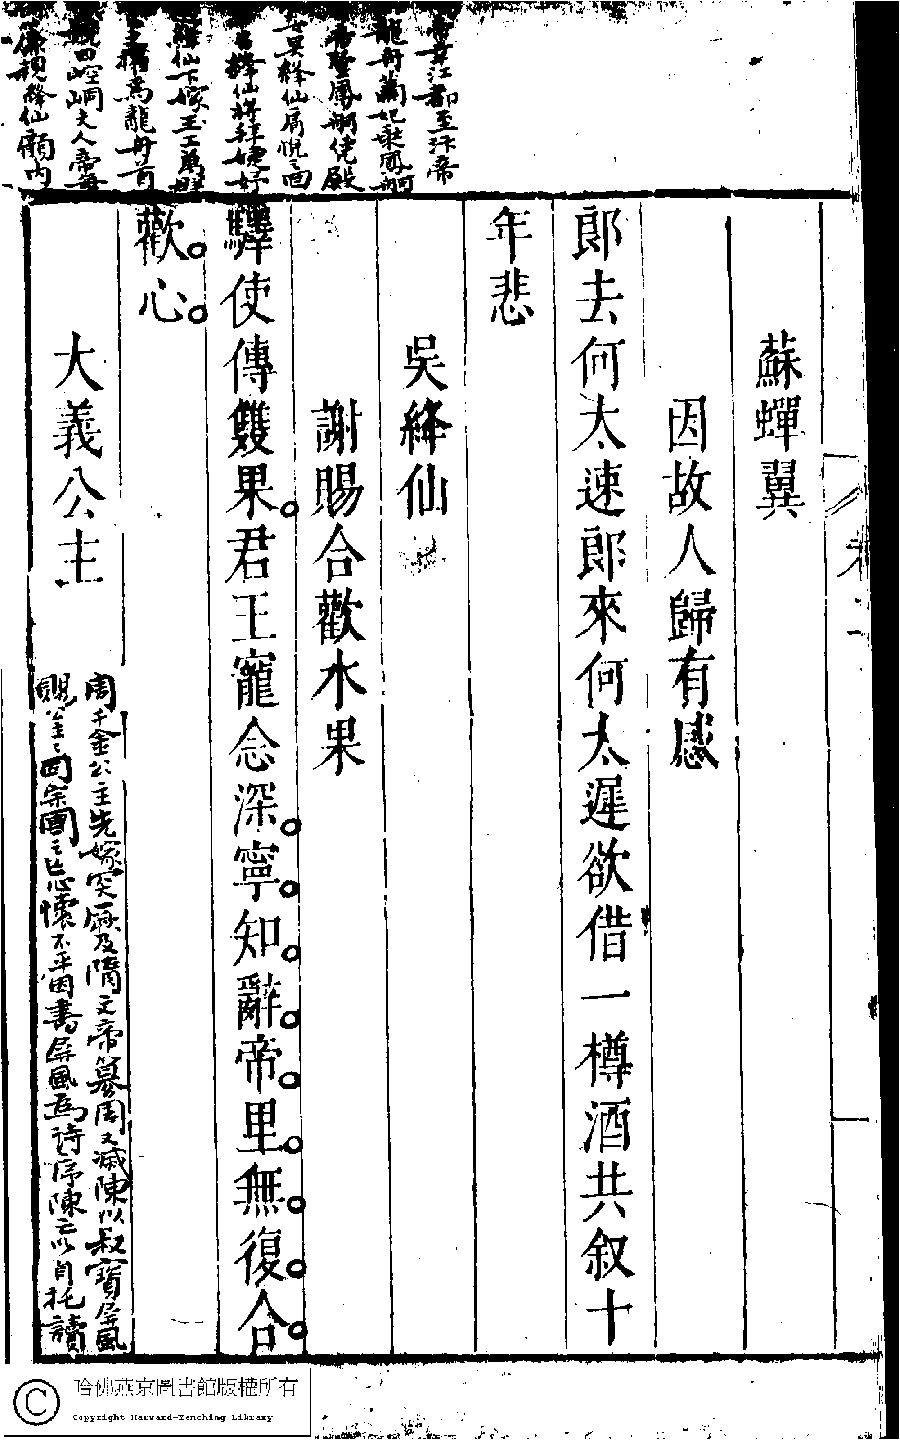 帝幸江都至汴帝
龍舟蕭妃乘鳳舸
世果絳仙
仙下嫁玉工萬群
為龍舟首
號崆峒夫人帝每
簾視絳仙顧內
蘇蟬翼
因故人歸有感
郎去何太速郎來何太遲欲借一樽酒共叙十
年悲
吳絳仙
謝賜合歡水果
驛使傳雙果君王寵念深寧知辭帝里無復合
歡心
大義公主
周千金公主先嫁突厥及隋文帝篡周又滅陳以叔寶屏風
賜公主主因宗國之亡心懷不平因書屏風為詩序陳亡以自托讀
哈佛燕京圖書館版權所有
Copyright Harvard-Yenching Library